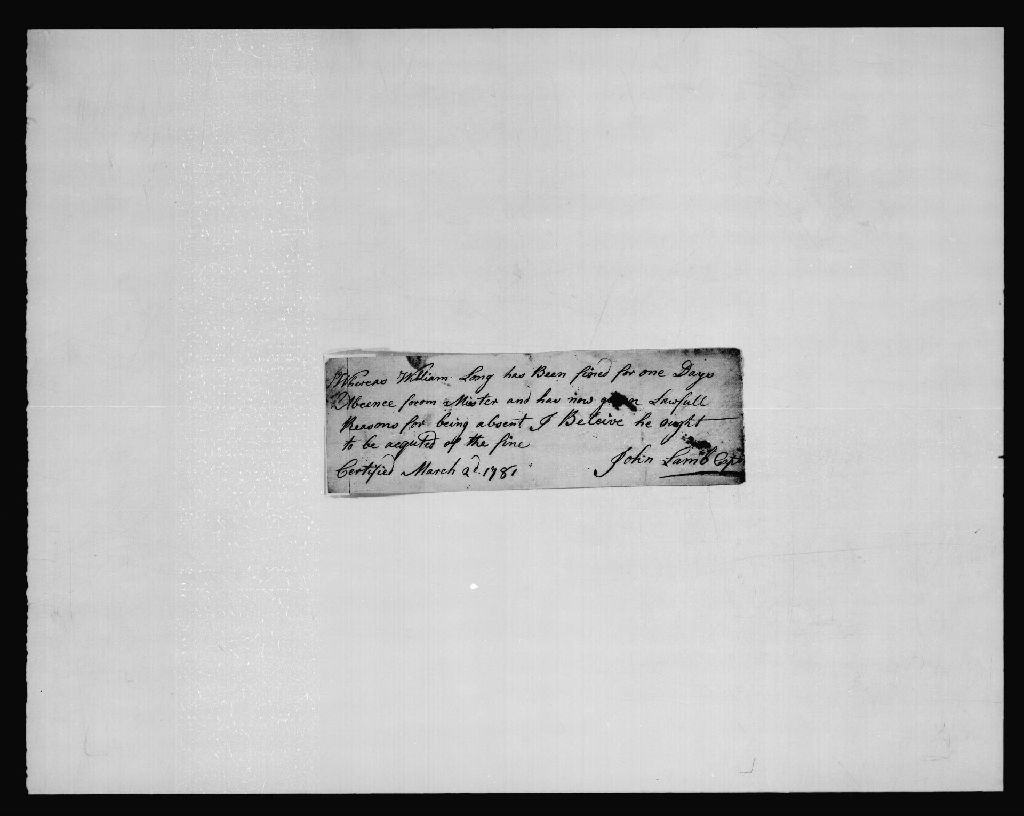 Whereas William Long has Been fined for one Days
Abcence from Muster and has now given Lawfull
Reasons for being absent I Beleive he ought
to be acquted of the fine
Certified March 2d. 1781
John Lamb Capt